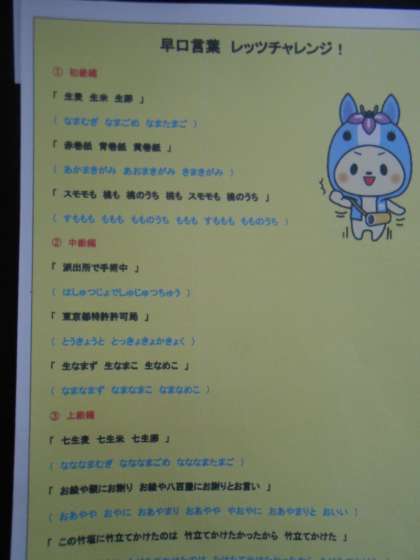 早口言葉 レッツチャレンジ!
① 初級編
「 生麦 生米 生卵 」
( なまむぎ なまごめ なまたまご )
「 赤巻紙 青巻紙 黄巻紙 」
( あかまきがみ あおまきがみ きまきがみ )
「 スモモも 桃も 桃のうち 桃も スモモも 桃のうち 」
( すももも ももも もものうち ももも すももも もものうち )
② 中級編
「 派出所で手術中 」
( はしゅつじょでしゅじゅつちゅう )
「 東京都特許許可局 」
( とうきょうと とっきょきょかきょく )
「 生なまず 生なまこ 生なめこ 」
( なまなまず なまなまこ なまなめこ )
③ 上級編
「 七生麦 七生米 七生卵 」
( なななまむぎ なななまごめ なななまたまご )
「 お綾や親にお謝り お綾や八百屋にお謝りとお言い 」
( おあやや おやに おあやまり おあやや やおやに おあやまりと おいい )
「 この竹垣に竹立てかけたのは 竹立てかけたかったから 竹立てかけた 」